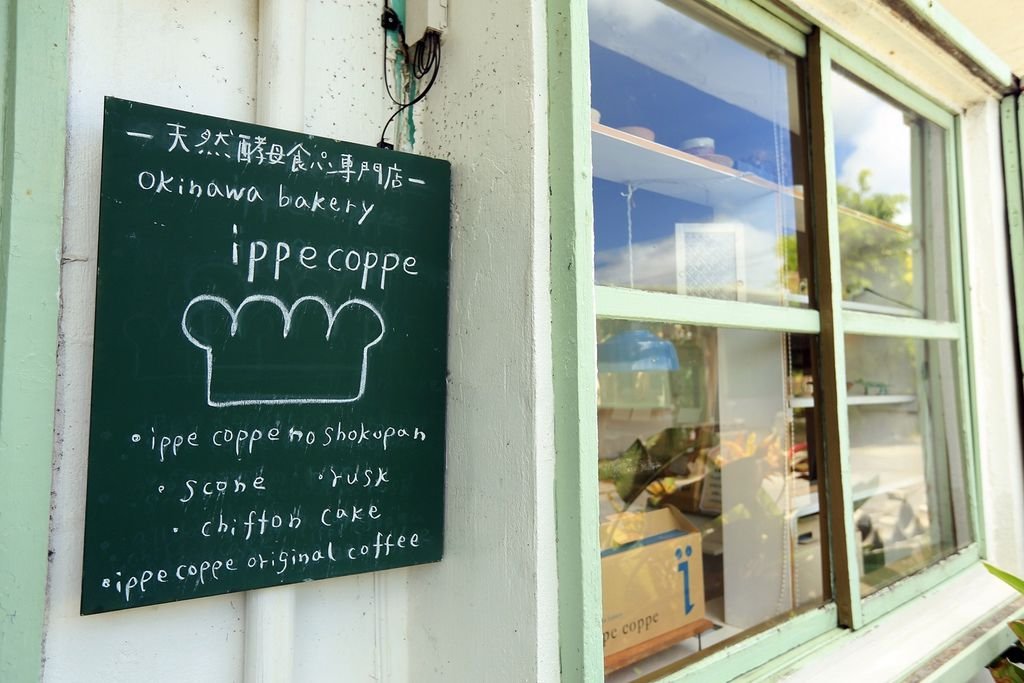 ー天然酵母食パン専門店ー
Okinawa bakery
ippe coppe
・ippe coppe no shokupan
・scone ・rusk
・chiffon cake
・ippe coppe original coffee
ï
pe coppe